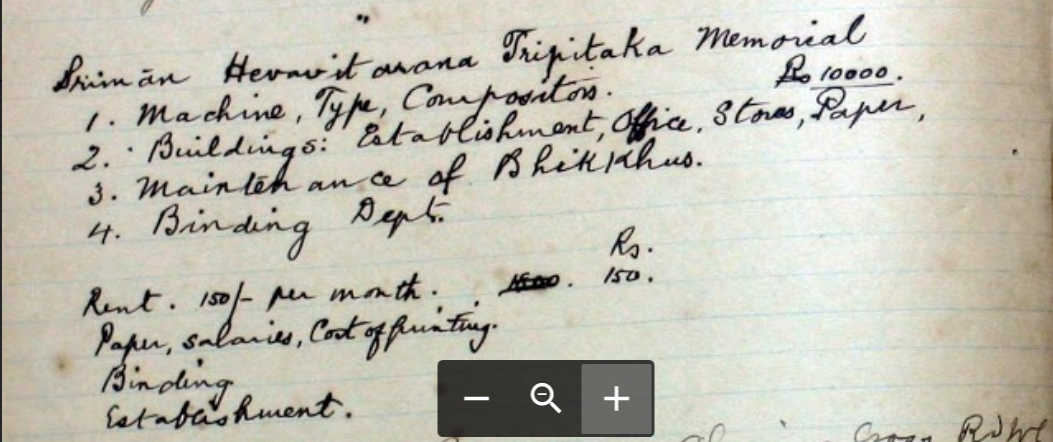 "
Srimān Hevavitarana Tripitaka Memorial
Rs 10000.
1. Machine, Type, Compositors.
2. Buildings: Establishment, Office, Stores, Paper,
3. Maintenance of Bhikkhus.
4. Binding Dept.
Rs.
Rent. 150/- per month. 150.
Paper, salaries, Cost of printing.
Binding
Establishment.